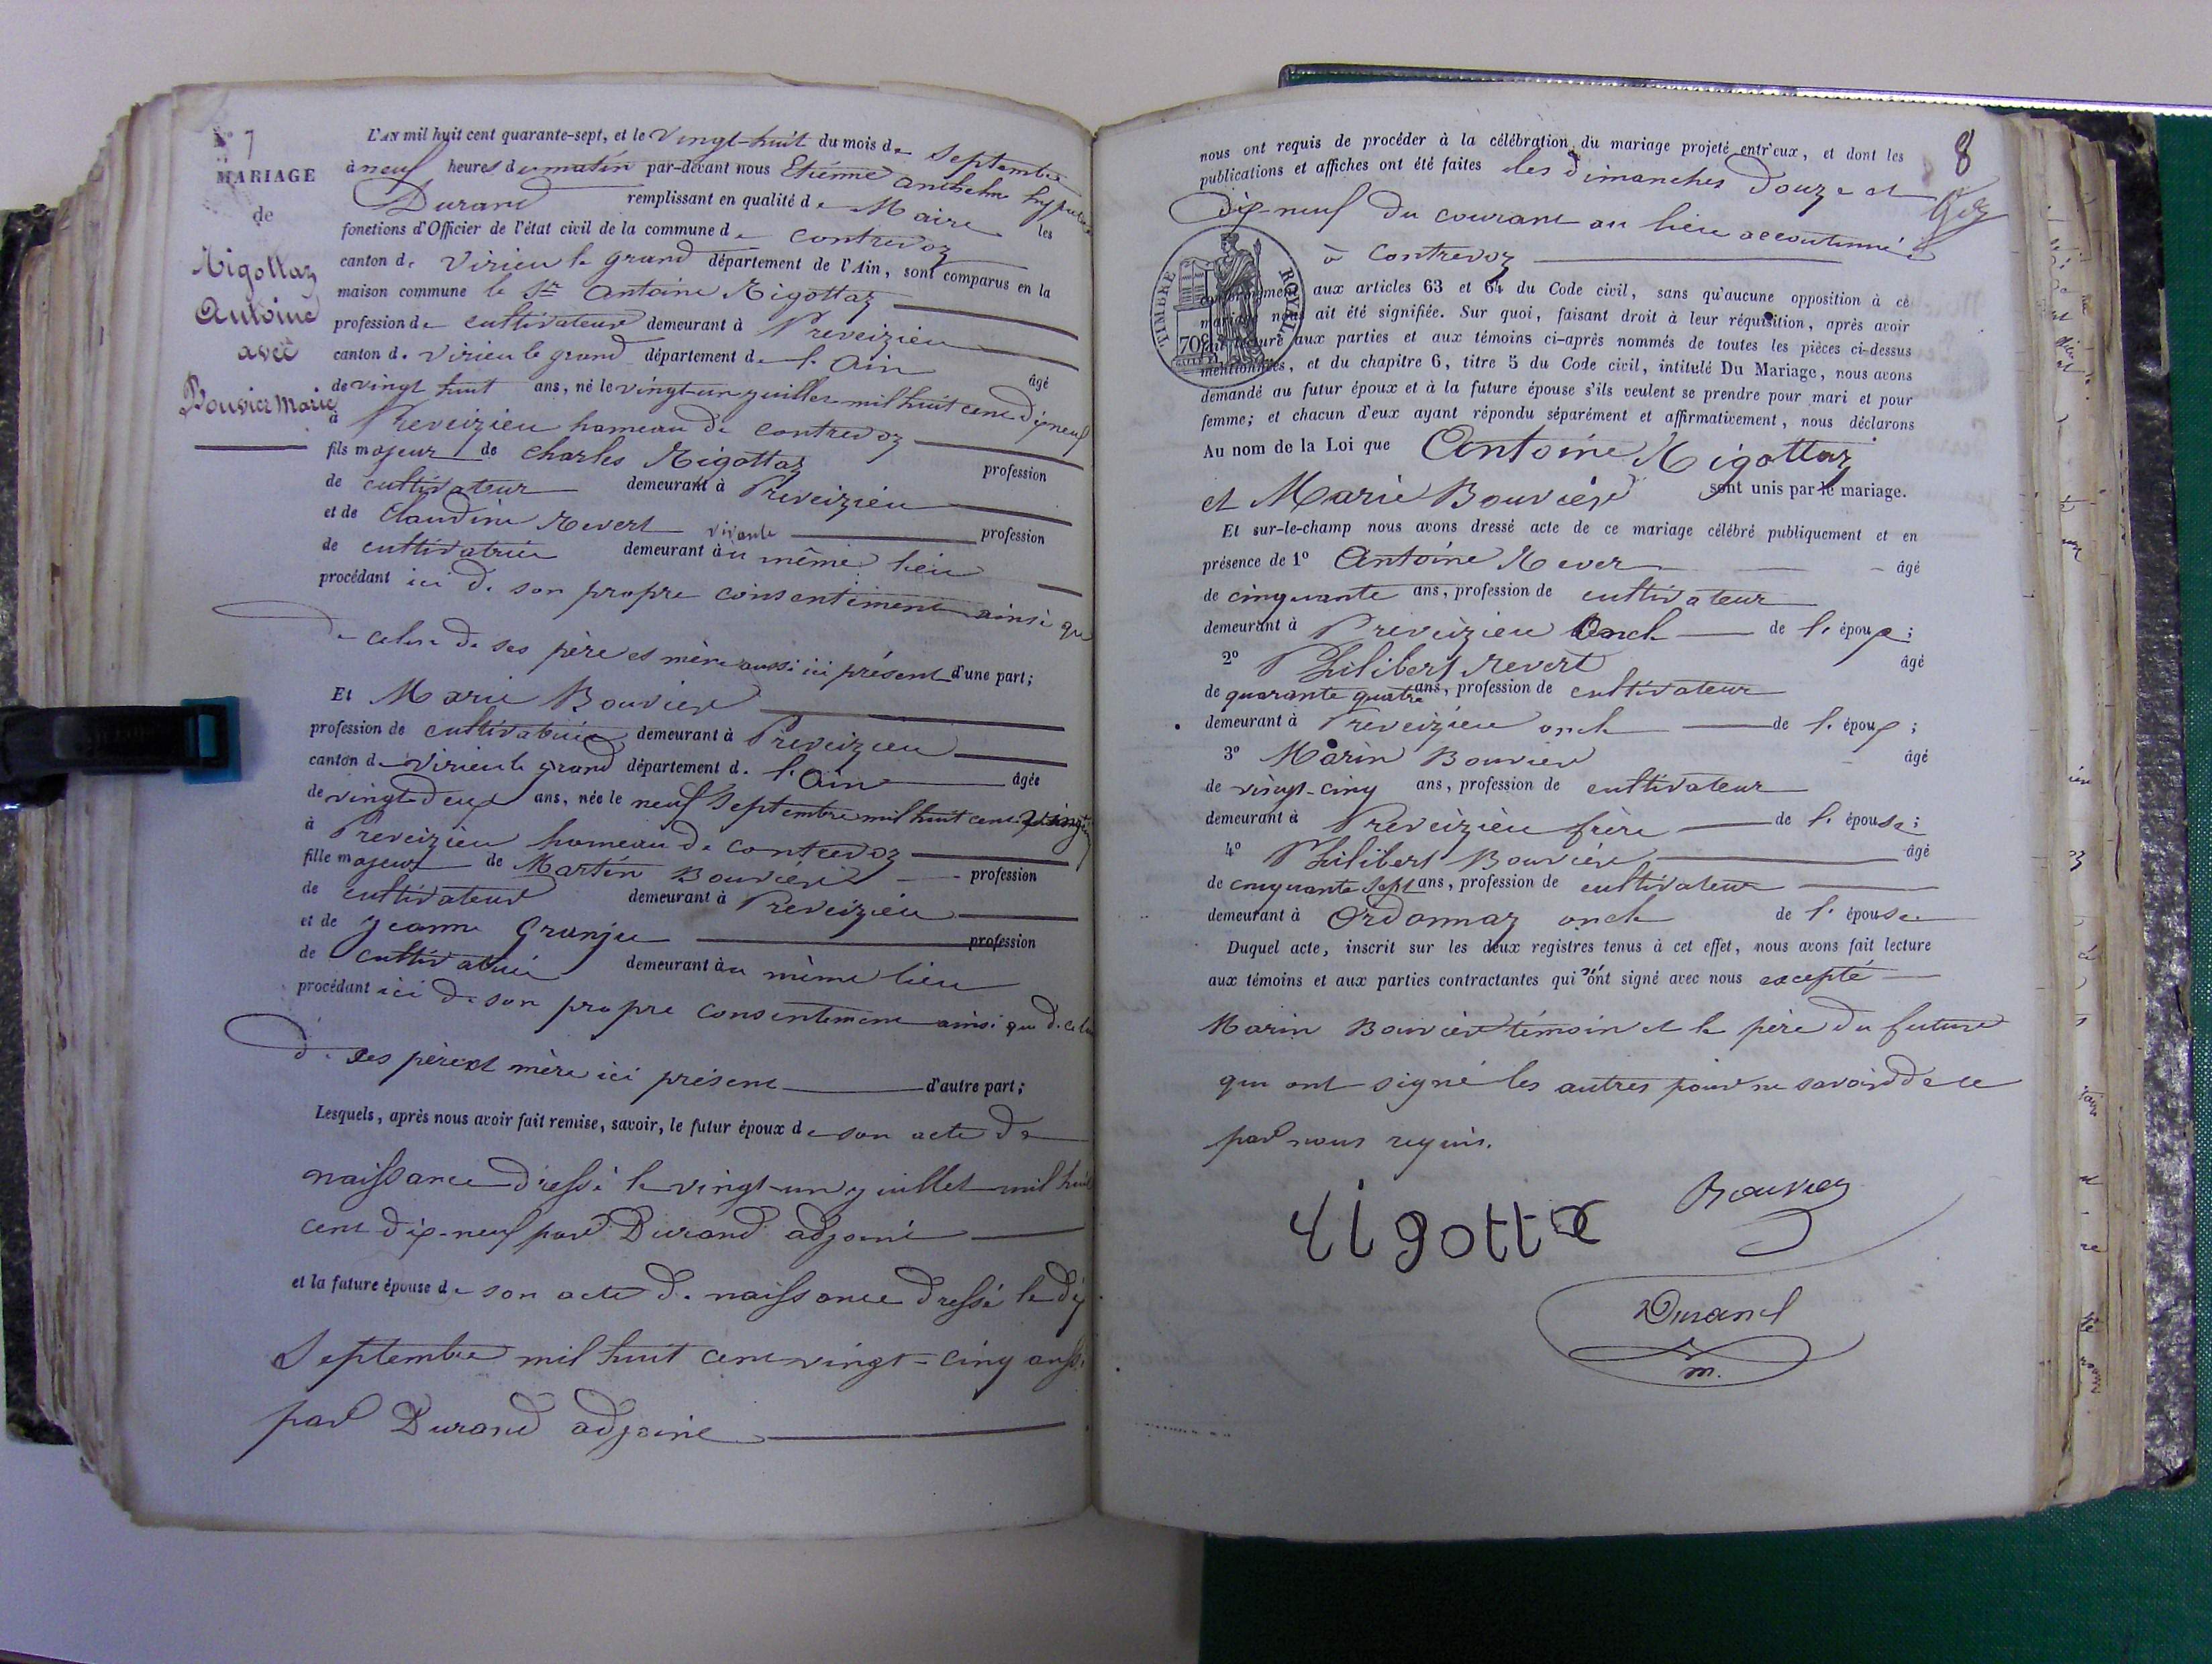 N° 7
MARIAGE
de
Rigottaz
Antoine
avec
Bouvier Marie
L'AN mil huit cent quarante-sept, et le vingt-huit du mois de Septembre
à neuf heures du matin par-devant nous Etienne anthelme hypolite
Durand remplissant en qualité de Maire les
fonctions d'Officier de l'état civil de la commune de contrevoz
canton de Virieu le grand département de l'Ain, sont comparus en la
maison commune le Sr Antoine Rigottaz
profession de cultivateur demeurant à Preveizieu
canton de Virieu le grand département de l'Ain âgé
de vingt huit ans, né le vingt-un juillet mil huit cent dix neuf
à Preveizieu hameau de contrevoz
fils majeur de charles Rigottaz profession
de cultivateur demeurant à Preveizieu
et de Claudine Revert vivante profession
de cultivatrice demeurant au même lieu
procédant ici de son propre consentement ainsi que
de celui de ses père et mère aussi ici présent d'une part;
Et Marie Bouvier
profession de cultivatrice demeurant à Preveizieu
canton de Virieu le grand département de l'Ain âgée
de vingt deux ans, née le neuf Septembre mil huit cent vingt
à Preveizieu hameau de contrevoz
fille majeur de Martin Bouvier profession
de cultivateur demeurant à Preveizieu
et de Jeanne Granju profession
de cultivatrice demeurant au même lieu
procédant ici de son propre consentement ainsi que de celui
de ses père et mère ici présent d'autre part;
Lesquels, après nous avoir fait remise, savoir, le futur époux de son acte de
naissance dressé le vingt-un juillet mil huit
cent dix-neuf par Durand adjoint
et la future épouse de son acte de naissance dressé le dix
Septembre mil huit cent vingt-cinq aussi
par Durand adjoint
8
nous ont requis de procéder à la célébration du mariage projeté entr'eux, et dont les
publications et affiches ont été faites les dimanches douze et
dix-neuf du courant au lieu accoutumé
à contrevoz
TIMBRE ROYAL
70c
conformément aux articles 63 et 64 du Code civil, sans qu'aucune opposition à ce
mariage nous ait été signifiée. Sur quoi, faisant droit à leur réquisition, après avoir
fait lecture aux parties et aux témoins ci-après nommés de toutes les pièces ci-dessus
mentionnées, et du chapitre 6, titre 5 du Code civil, intitulé Du Mariage, nous avons
demandé au futur époux et à la future épouse s'ils veulent se prendre pour mari et pour
femme; et chacun d'eux ayant répondu séparément et affirmativement, nous déclarons
Au nom de la Loi que Antoine Rigottaz
et Marie Bouvier sont unis par le mariage.
Et sur-le-champ nous avons dressé acte de ce mariage célébré publiquement et en
présence de 1° Antoine Rever âgé
de cinquante ans, profession de cultivateur
demeurant à Preveizieu Oncle de l'époux;
2° Philibert Revert âgé
de quarante quatre ans, profession de cultivateur
demeurant à Preveizieu oncle de l'époux;
3° Marin Bouvier âgé
de vingt-cinq ans, profession de cultivateur
demeurant à Preveizieu frère de l'épouse;
4° Philibert Bouvier âgé
de cinquante sept ans, profession de cultivateur
demeurant à Ordonnaz oncle de l'épouse
Duquel acte, inscrit sur les deux registres tenus à cet effet, nous avons fait lecture
aux témoins et aux parties contractantes qui n'ont signé avec nous excepté
Marin Bouvier témoin et le père du future
qui ont signé les autres pour ne savoir de ce
par nous requis.
rigotta
Bouvier
Durand
m.